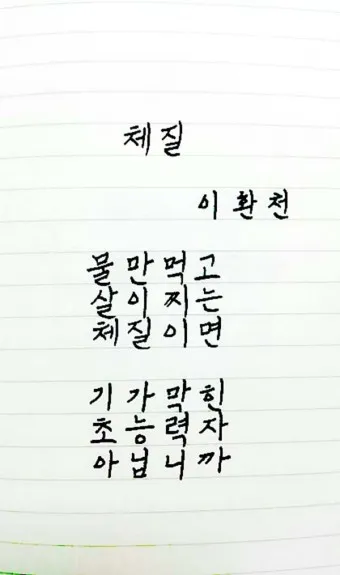 체질
이환천
물만먹고
살이찌는
체질이면
기가막힌
초능력자
아닙니까